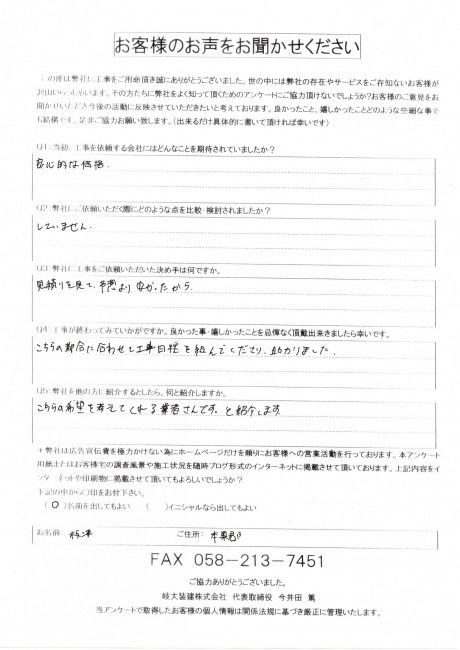 お客様のお声をお聞かせください
の度は弊社に工事をご用命頂き誠にありがとうございました。世の中には弊社の存在やサービスをご存知ないお客様が
沢山いらっしゃいます。その方たちに弊社をよく知って頂くためのアンケートにご協力頂けないでしょうか?お客様のご意見をお
聞かせいただき今後の活動に反映させていただきたいと考えております。良かったこと、嬉しかったことどのような些細な事で
も結構です。是非ご協力お願い致します。(出来るだけ具体的に書いて頂ければ幸いです)
Q1:当初、工事を依頼する会社にはどんなことを期待されていましたか?
良心的な価格.
Q2:弊社にご依頼いただく際にどのような点を比較・検討されましたか?
していません.
Q3:弊社に工事をご依頼いただいた決め手は何ですか。
見積りを見て、予想より安かったから.
Q4:工事が終わってみていかがですか。良かった事・嬉しかったことを忌憚なく頂戴出来きましたら幸いです。
こちらの都合に合わせて工事日程を組んでくださり、助かりました.
Q5:弊社を他の方に紹介するとしたら、何と紹介しますか。
こちらの希望を考えてくれる業者さんです。と紹介します
*弊社は広告宣伝費を極力かけない為にホームページだけを頼りにお客様への営業活動を行っております。本アンケート
用紙またはお客様宅の調査風景や施工状況を随時ブログ形式のインターネットに掲載させて頂いております。上記内容をイ
ンターネットや印刷物に掲載させて頂いてもよろしいでしょうか?
下記の中から〇印をお付下さい。
(○)名前を出してもよい ( )イニシャルなら出してもよい
お名前: ご住所: 本巣郡
FAX 058-213-7451
ご協力ありがとうございました。
岐大装建株式会社 代表取締役 今井田 篤
当アンケートで取得したお客様の個人情報は関係法規に基づき厳正に管理いたします。